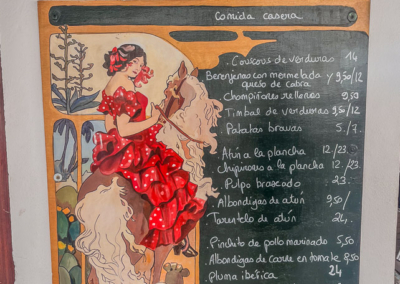 Comida casera
. Couscous de verduras 14
Berenjenas con mermelada y 9,50/12
queso de cabra
Champiñones rellenos 9,50
Timbal de verduras 9,50/12
Patatas bravas 5./7.
Atún a la plancha 12/23.
. Chipirones a la plancha 12./23.
. Pulpo braseado 23.
. Albondigas de atún 9,50/
Tarantelo de atún 24,
. Pinchito de pollo marinado 5,50
. Albondigas de carne en tomate 9,50
. Pluma ibérica 24